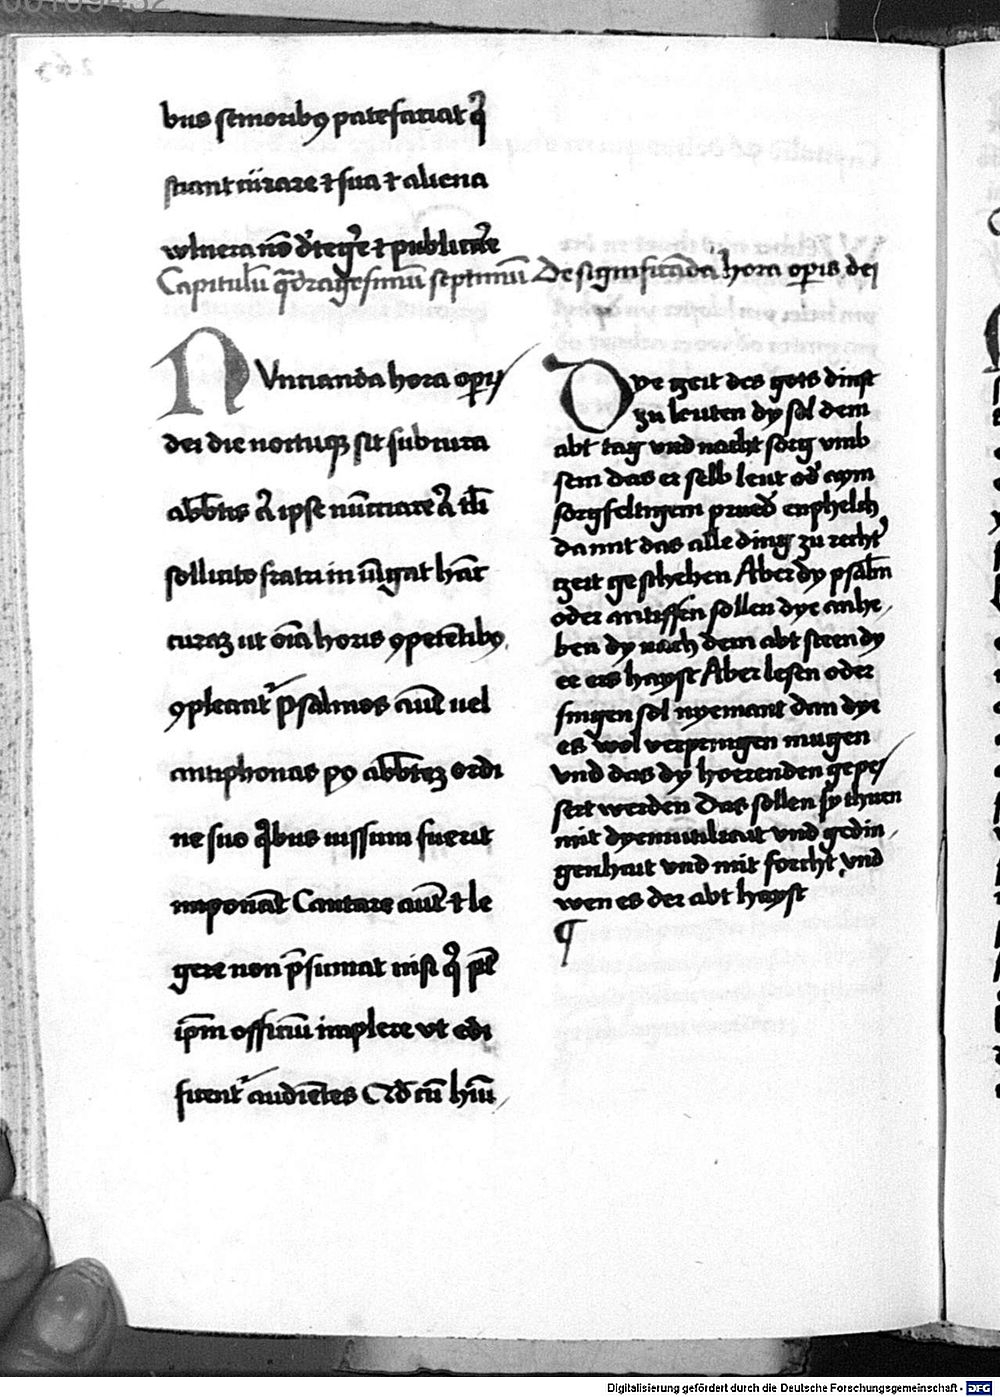 bus senioribꝯ patefaciat qͥ
sciant curare ⁊ sua ⁊ aliena
wlnera nō deteg̾e ⁊ publicare
Capitulū qͣdragesimū septimū De significāda hora oꝑis dei
NVncianda hora oꝑis
dei die noctuqꝫ sit sub cura
abb̄tis aͭ ipse nūciare aͭ tali
sollicito fratri iniūgat hāc
curaꝫ ut oīa horis ꝯpetētibꝯ
ꝯpleant᷑ psalmos aūt uel
antiphonas pꝰ abb̄teꝫ ordi
ne suo qͥbus iussum fuerit
imponāt Cantare aūt ⁊ le
gere non p̄sumat nisi qͥ pōt
ip̄m officiū implere vt edi
ficent᷑ audiētes Qd̄ cū hūi
Dye zeit des gots dinst
zu leuten dy sol dem
abt tag vnd nacht sorg vmb
sein das er selb leut od̾ aym
sorgfeltigem prued̾ enphelch
damit das alle ding zu recht̾
zeit geschehen Aber dy psalm̄
oder antiffen sollen dye anhe
ben dy nach dem abt steen dy
er ers hayst Aber lesen oder
singen sol nyemant dan dye
es wol verpringen mugen
vnd das dy hoerenden gepes
sert werden Das sollen sy thuen
mit dyemutikait vnd gedin
genhait vnd mit forcht vnd
wen es der abt hayst
¶
Digitalisierung gefördert durch die Deutsche Forschungsgemeinschaft - DFG